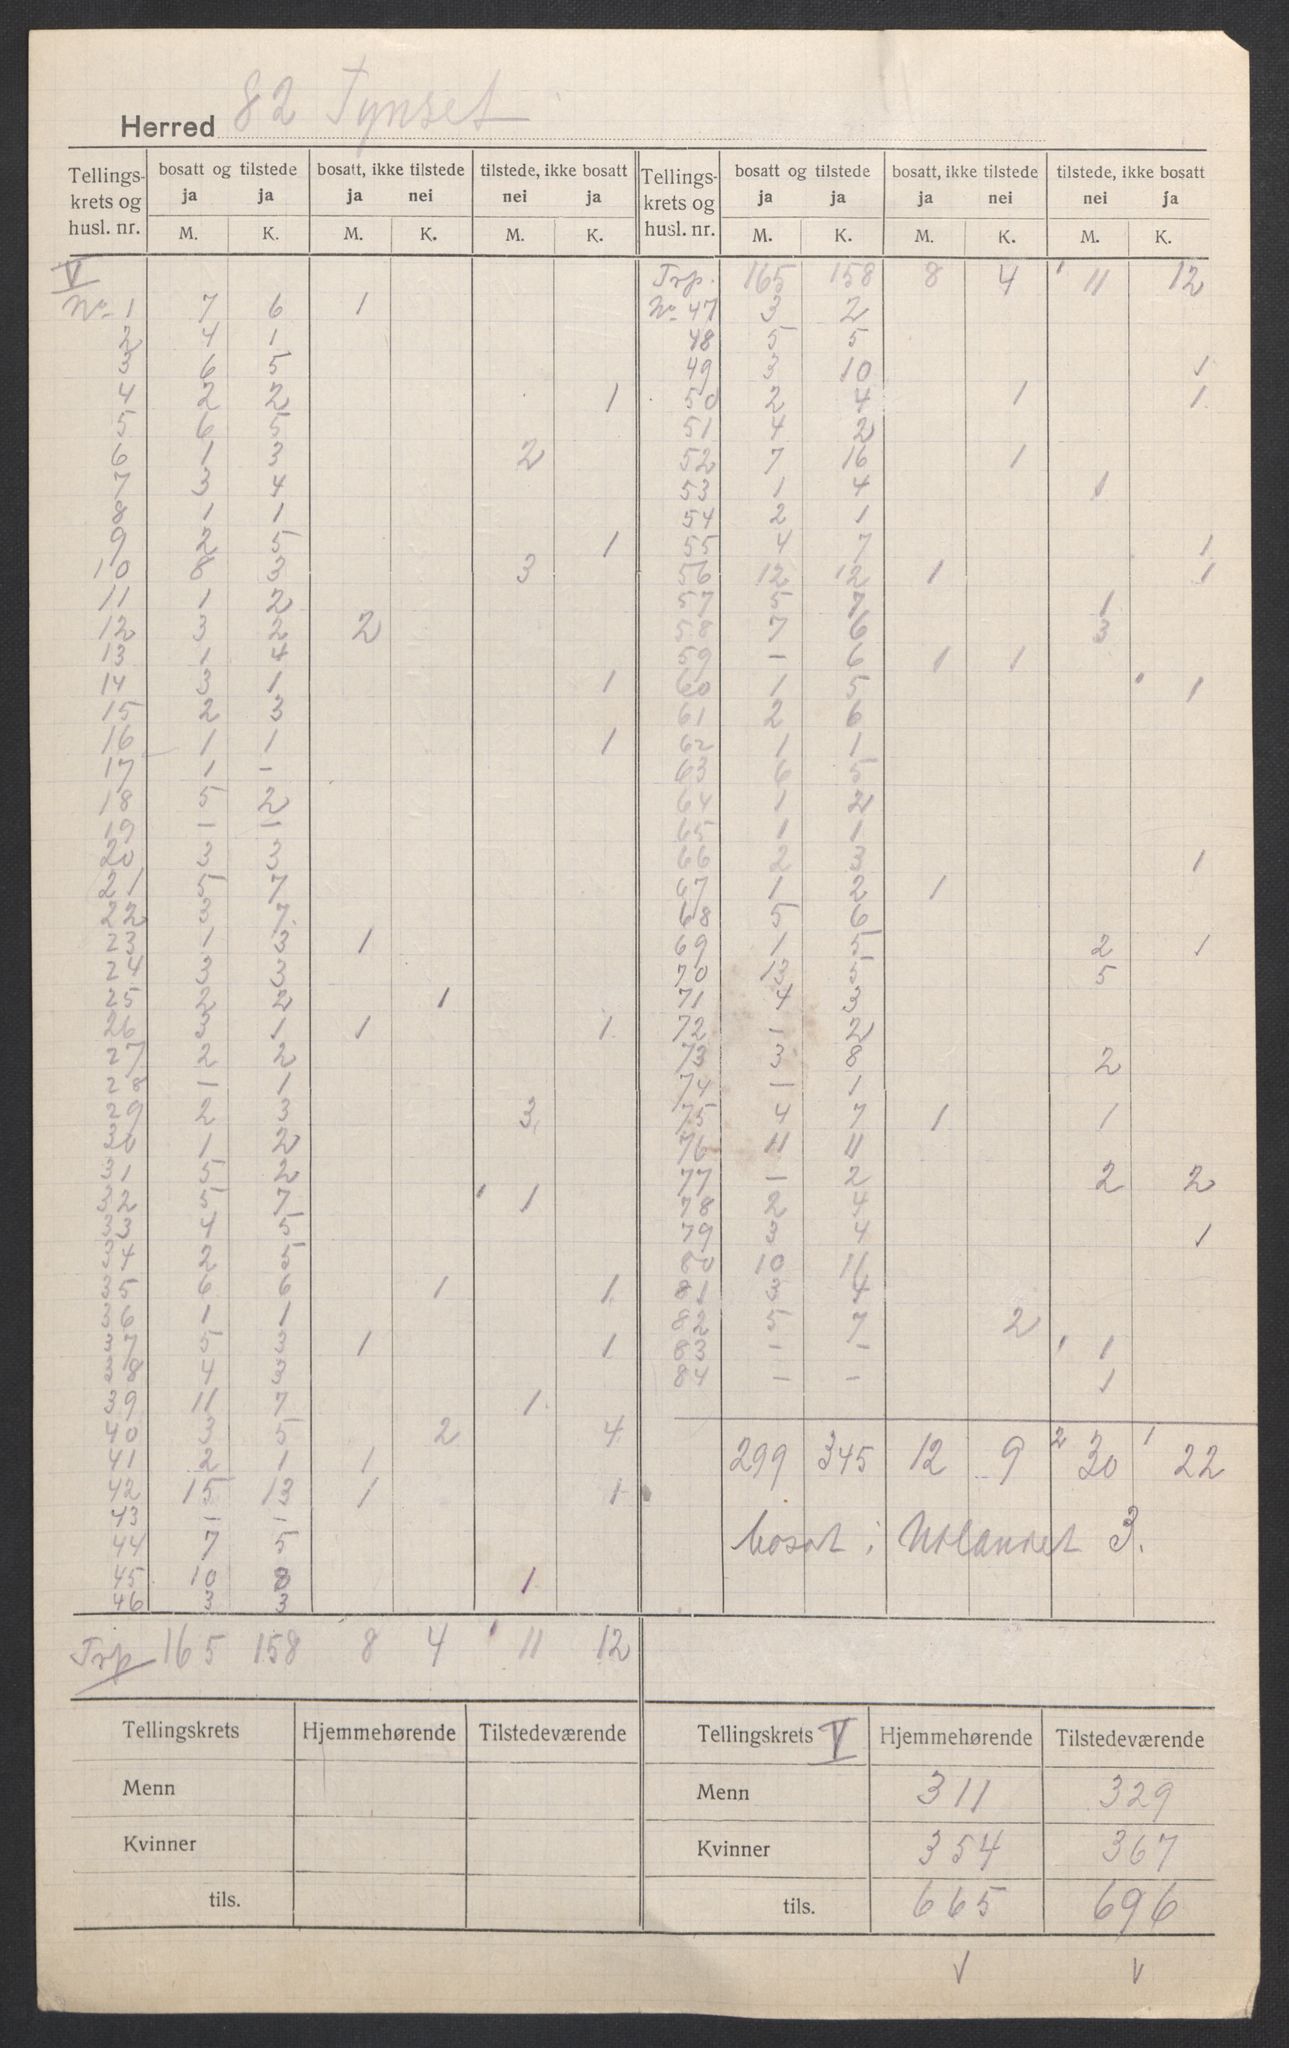 Herred 82 Tynset
Tellings- krets og husl. nr. | bosatt og tilstede ja ja | bosatt, ikke tilstede ja nei | tilstede, ikke bosatt nei ja | Tellings- krets og husl. nr. | bosatt og tilstede ja ja | bosatt, ikke tilstede ja nei | tilstede, ikke bosatt nei ja
M. K. M. K. M. K. M. K. M. K. M. K.
V Trp. 165 158 8 4 1 11 12
No 1 7 6 1 No 47 3 2
2 4 1 48 5 5
3 6 5 49 3 10 1
4 2 2 1 50 2 4 1 1
5 6 5 51 4 2
6 1 3 2 52 7 16 1
7 3 4 53 1 4 1
8 1 1 54 2 1
9 2 5 1 55 4 7 1
10 8 3 3 56 12 12 1 1
11 1 2 57 5 7 1
12 3 2 2 58 7 6 3
13 1 4 59 - 6 1 1
14 3 1 1 60 1 5 1
15 2 3 61 2 6
16 1 1 1 62 1 1
17 1 - 63 6 5
18 5 2 64 1 2
19 - - 65 1 1
20 3 3 66 2 3 1
21 5 7 67 1 2 1
22 3 7 68 5 6
23 1 3 1 69 1 5 2 1
24 3 3 70 13 5 5
25 2 2 1 71 4 3
26 3 1 1 1 72 - 2
27 2 2 73 3 8 2
28 - 1 74 - 1
29 2 3 3 75 4 7 1 1
30 1 2 76 11 11
31 5 2 77 - 2 2 2
32 5 7 1 1 78 2 4
33 4 5 79 3 4 1
34 2 5 80 10 11
35 6 6 1 1 81 3 4
36 1 1 82 5 7 2
37 5 3 1 1 83 - - 1 1
38 4 3 84 - - 1
39 11 7 1
40 3 5 2 4
41 2 1 1 299 345 12 9 2 30 1 22
42 15 13 1 1
43 - -
44 7 5 bosat i Utlandet 3.
45 10 8 1
46 3 3
Trp 165 158 8 4 1 11 12
Tellingskrets | Hjemmehørende | Tilstedeværende | Tellingskrets V | Hjemmehørende | Tilstedeværende
Menn Menn 311 329
Kvinner Kvinner 354 367
tils. tils. 665 696